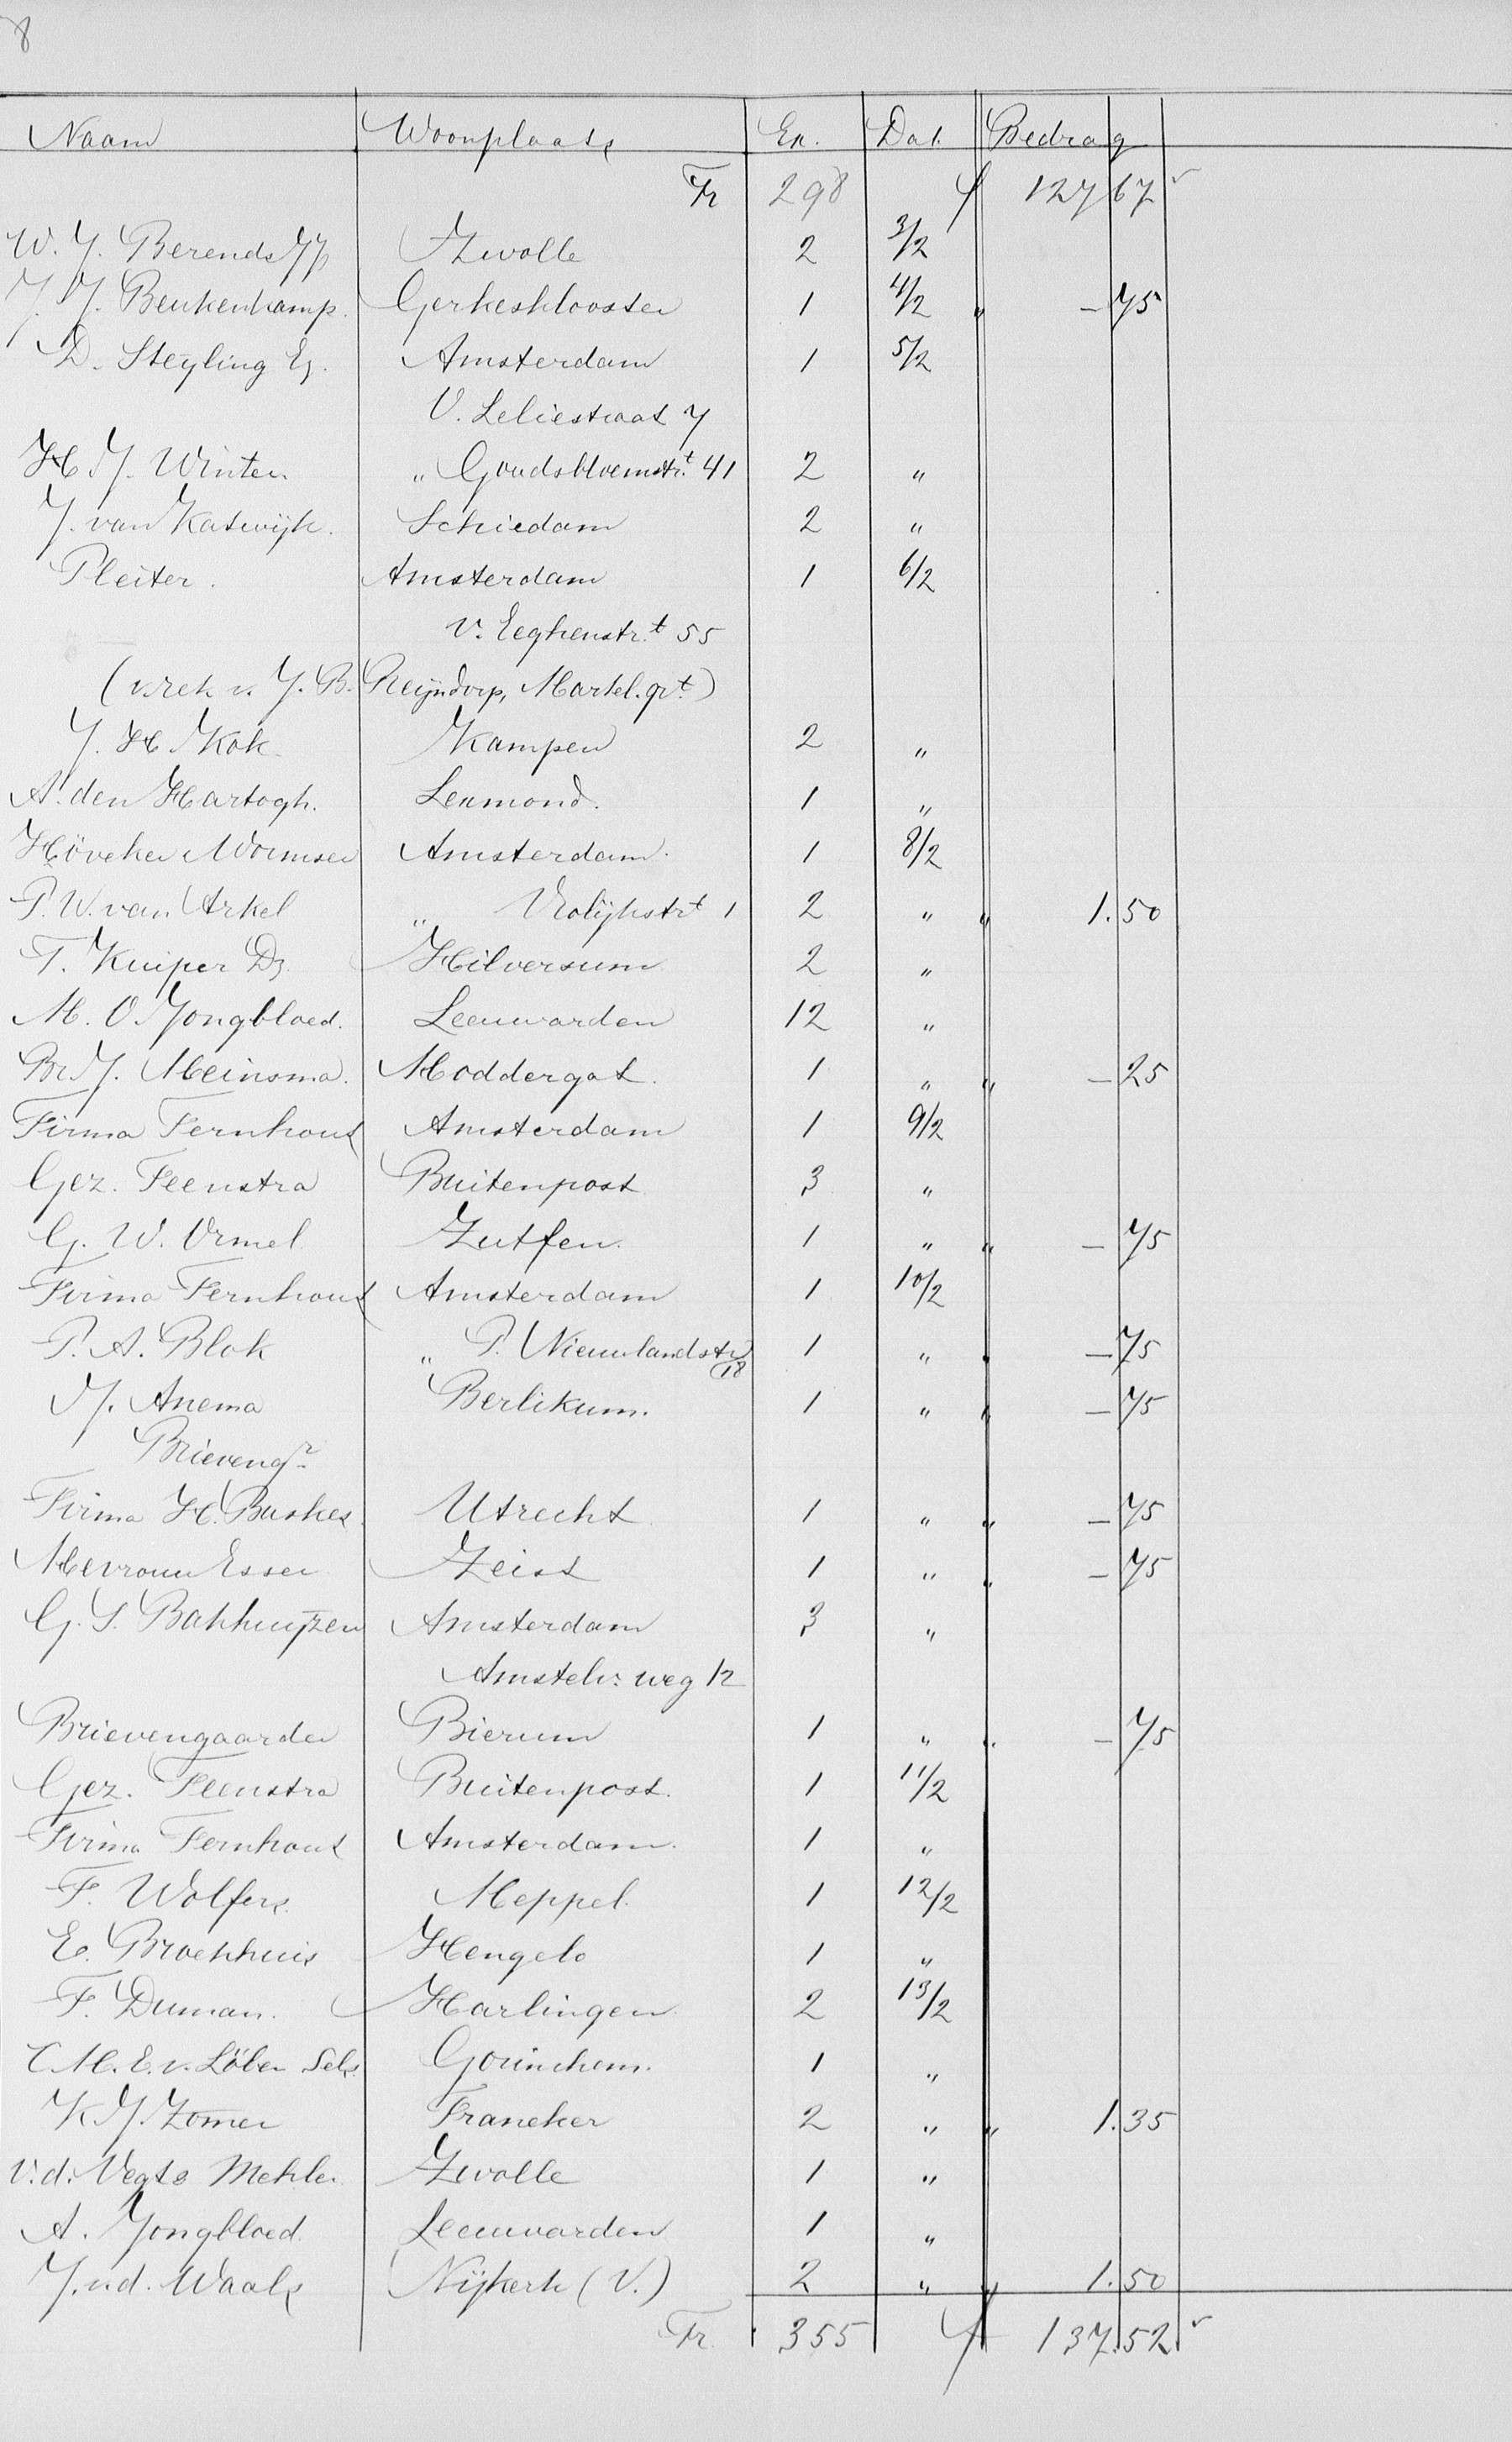 8
Naam Woonplaats Ex. Dat. Bedrag
Tr 298 f 127 67
W. J. Berends Jz Zwolle 2 3/2
J. J. Beukenkamp. Gerkesklooster 1 4/2 " - 75
D. Steyling Ez. Amsterdam 1 5/2
V. Leliestraat 7
H J. Winter " Goudsbloemstr.t 41 2 "
J. van Katwijk. Schiedam 2 "
Pleiter. Amsterdam 1 6/2
v. Eeghenstr.t 55
(v. rek v. J. B. Reijndorp, Martel. gr.t)
J. H Kok Kampen 2 "
A. den Hartogh. Lexmond. 1 "
Höveker Wormser Amsterdam. 1 8/2
P. W. van Arkel " Vrolijkstrt 1 2 " " 1.50
T. Kuiper Dz. Hilversum 2 "
M. O. Jongbloed. Leeuwarden 12 "
Br J. Meinsma. Moddergat. 1 " " - 25
Firma Fernhout Amsterdam 1 9/2
Gez. Feenstra Buitenpost 3 "
G. W. Ormel Zutfen. 1 " " - 75
Firma Fernhout Amsterdam 1 10/2
P. A. Blok " P. Nieuwlandstr 18 1 " " - 75
J. Anema Berlikum. 1 " " - 75
Brieveng.r
Firma H. Buskes Utrecht 1 " " - 75
Mevrouw Esser Zeist 1 " " - 75
G. S. Bakhuyzen Amsterdam 3 "
Amstelv. weg 12
Brievengaarder Bierum 1 " " - 75
Gez. Feenstra Buitenpost. 1 11/2
Firma Fernhout Amsterdam. 1 "
F. Wolfers Meppel. 1 12/2
E. Broekhuis Hengelo 1 "
F. Duman. Harlingen 2 13/2
C. M. E. v. Löben Sels Gorinchem. 1 "
K J. Zomer Franeker 2 " " 1.35
v. d. Vegts Mekle. Zwolle 1 "
A. Jongbloed Leeuwarden 1 "
J. v d. Waals Nijkerk (V.) 2 " " 1.50
Tr. 355 f 137.52